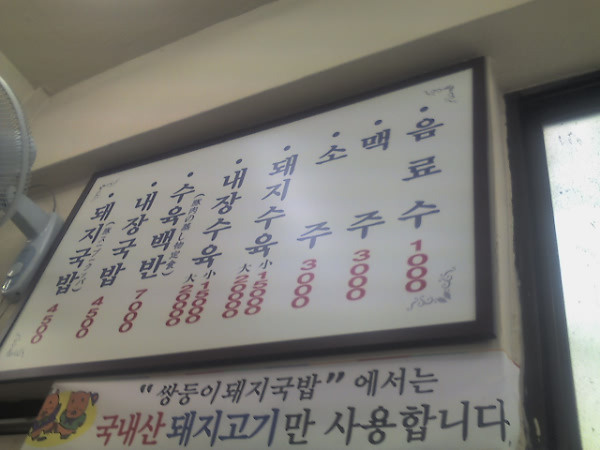 ·돼지국밥 4500
(豚スープクッパ)
·내장국밥 4500
·수육백반 7000
(豚肉の蒸し物定食)
·내장수육 小 15000
大 20000
·돼지수육 小 15000
大 20000
·소주 3000
·맥주 3000
·음료수 1000
"쌍둥이돼지국밥"에서는
국내산 돼지고기만 사용합니다